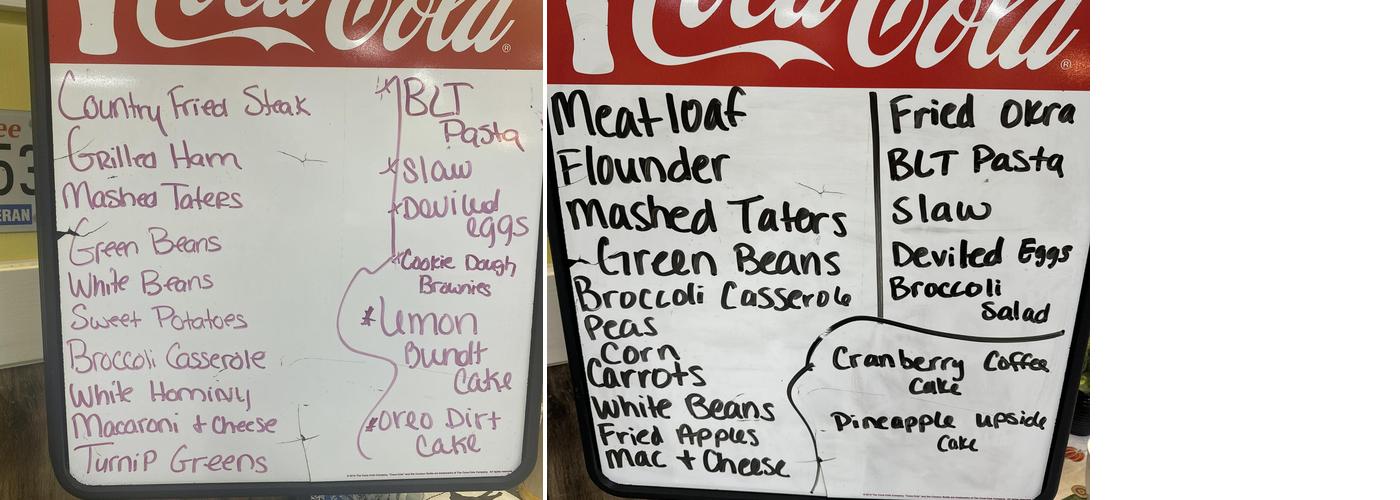 Coca Cola®
Country Fried Steak
Grilled Ham
Mashed Taters
Green Beans
White Beans
Sweet Potatoes
Broccoli Casserole
White Hominy
Macaroni + Cheese
Turnip Greens
BLT
Pasta
Slaw
Deviled
eggs
Cookie Dough
Brownies
Lemon
Bundt
Cake
Oreo Dirt
Cake
ee
53
ERAN
Coca Cola®
Meatloaf
Flounder
Mashed Taters
Green Beans
Broccoli Casserole
Peas
Corn
Carrots
White Beans
Fried Apples
Mac + Cheese
Fried Okra
BLT Pasta
Slaw
Deviled Eggs
Broccoli
Salad
Cranberry Coffee
Cake
Pineapple upside
Cake